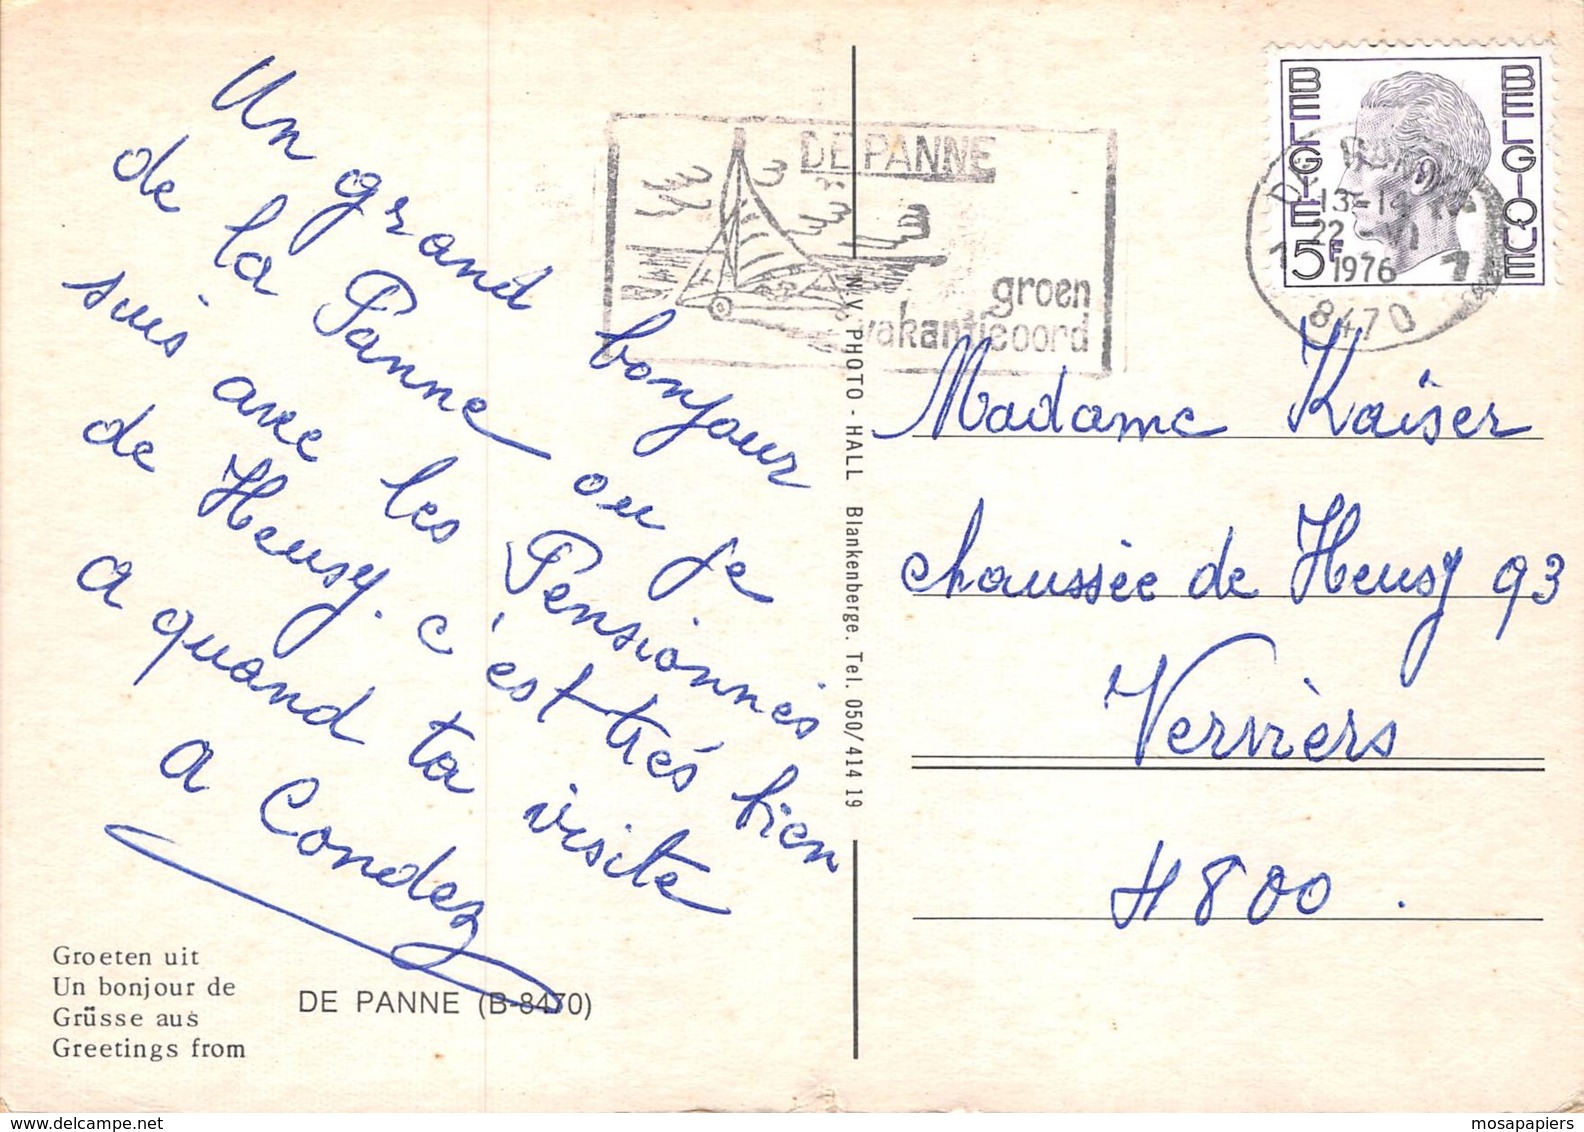 Un grand bonjour
de la Panne ou je
suis avec les Pensionnés
de Heusy. c'est trés bien
a quand ta visite
a Condez
Groeten uit
Un bonjour de
Grüsse aus
Greetings from
DE PANNE (B-8470)
DE PANNE
groen
vakantieoord
N.V. PHOTO - HALL Blankenberge. Tel. 050/414 19
BELGIË
BELGIQUE
5F
13-14
22 -VI
1976
8470
Madame Kaiser
chaussée de Heusy 93
Verviers
4800.
mosapapiers